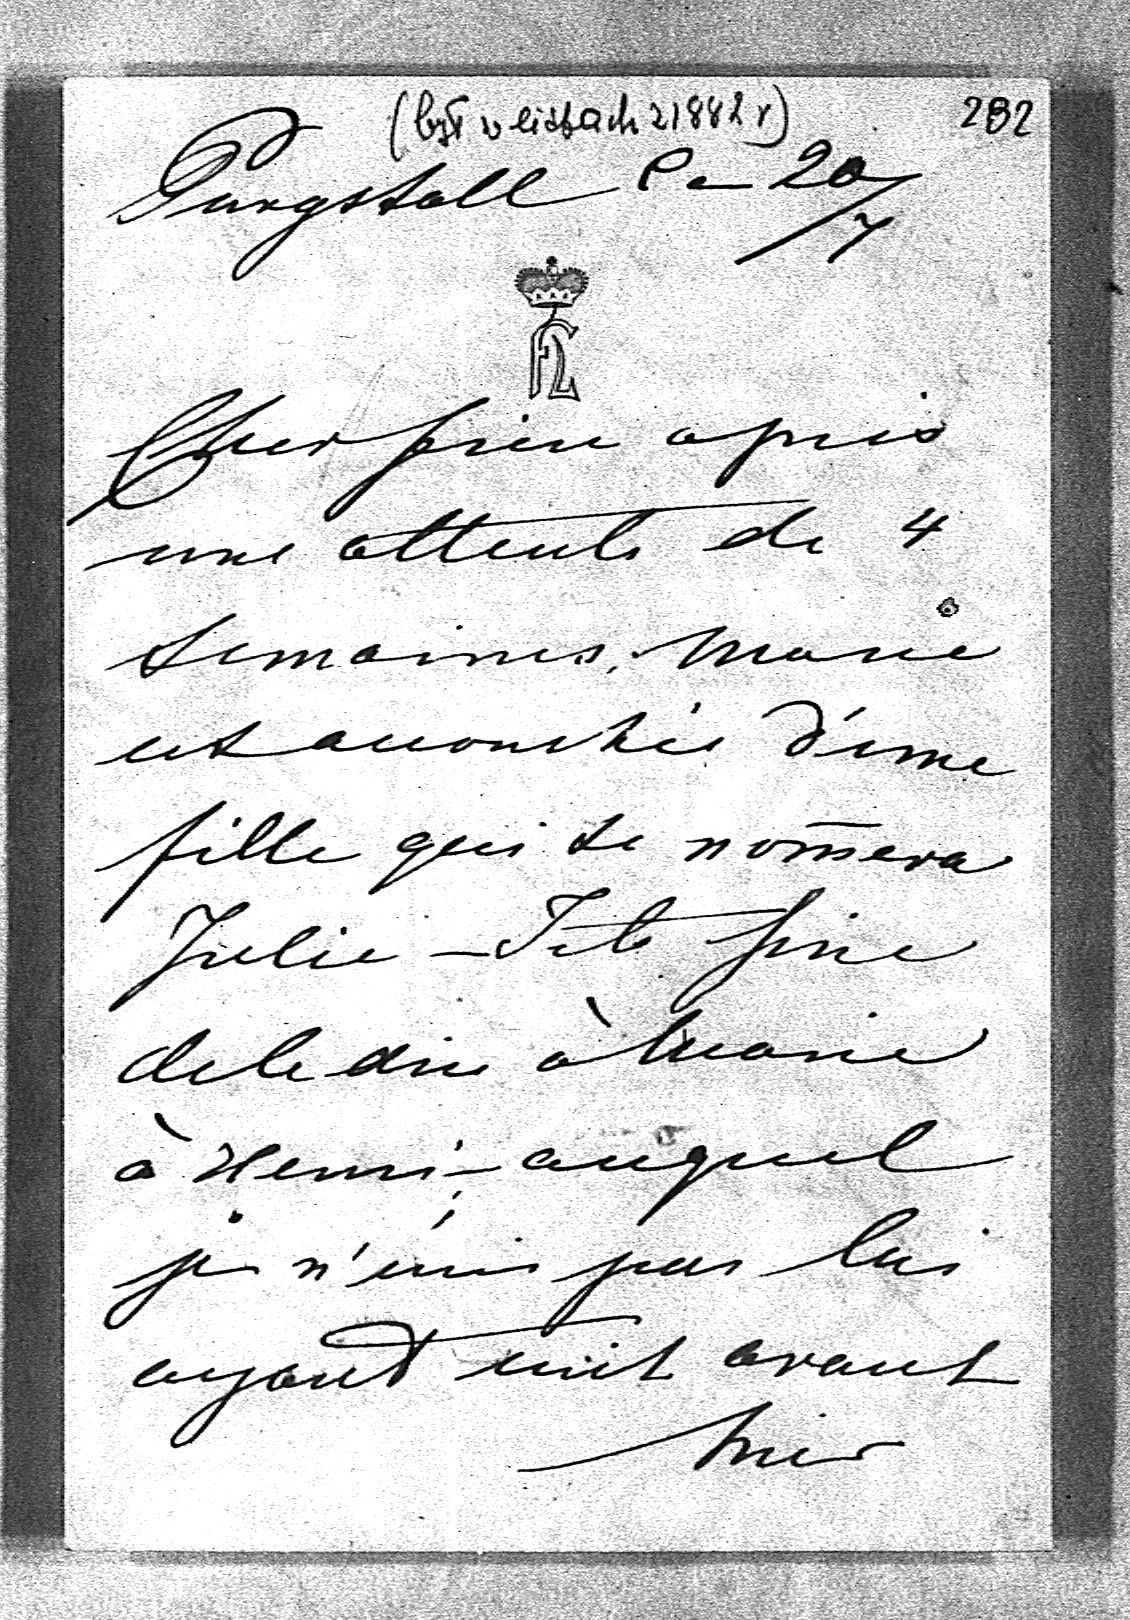 (był w listach z 1882 r)
282
Purgstall le 20/7
FL
Cher frère après
une attente de 4
semaines, Marie
est accouchée d'une
fille qui se nom̄era
Julie – Je te prie
de le dire à Marie
à Henri – auquel
je n'écris pas lui
ayant écrit avant
hier